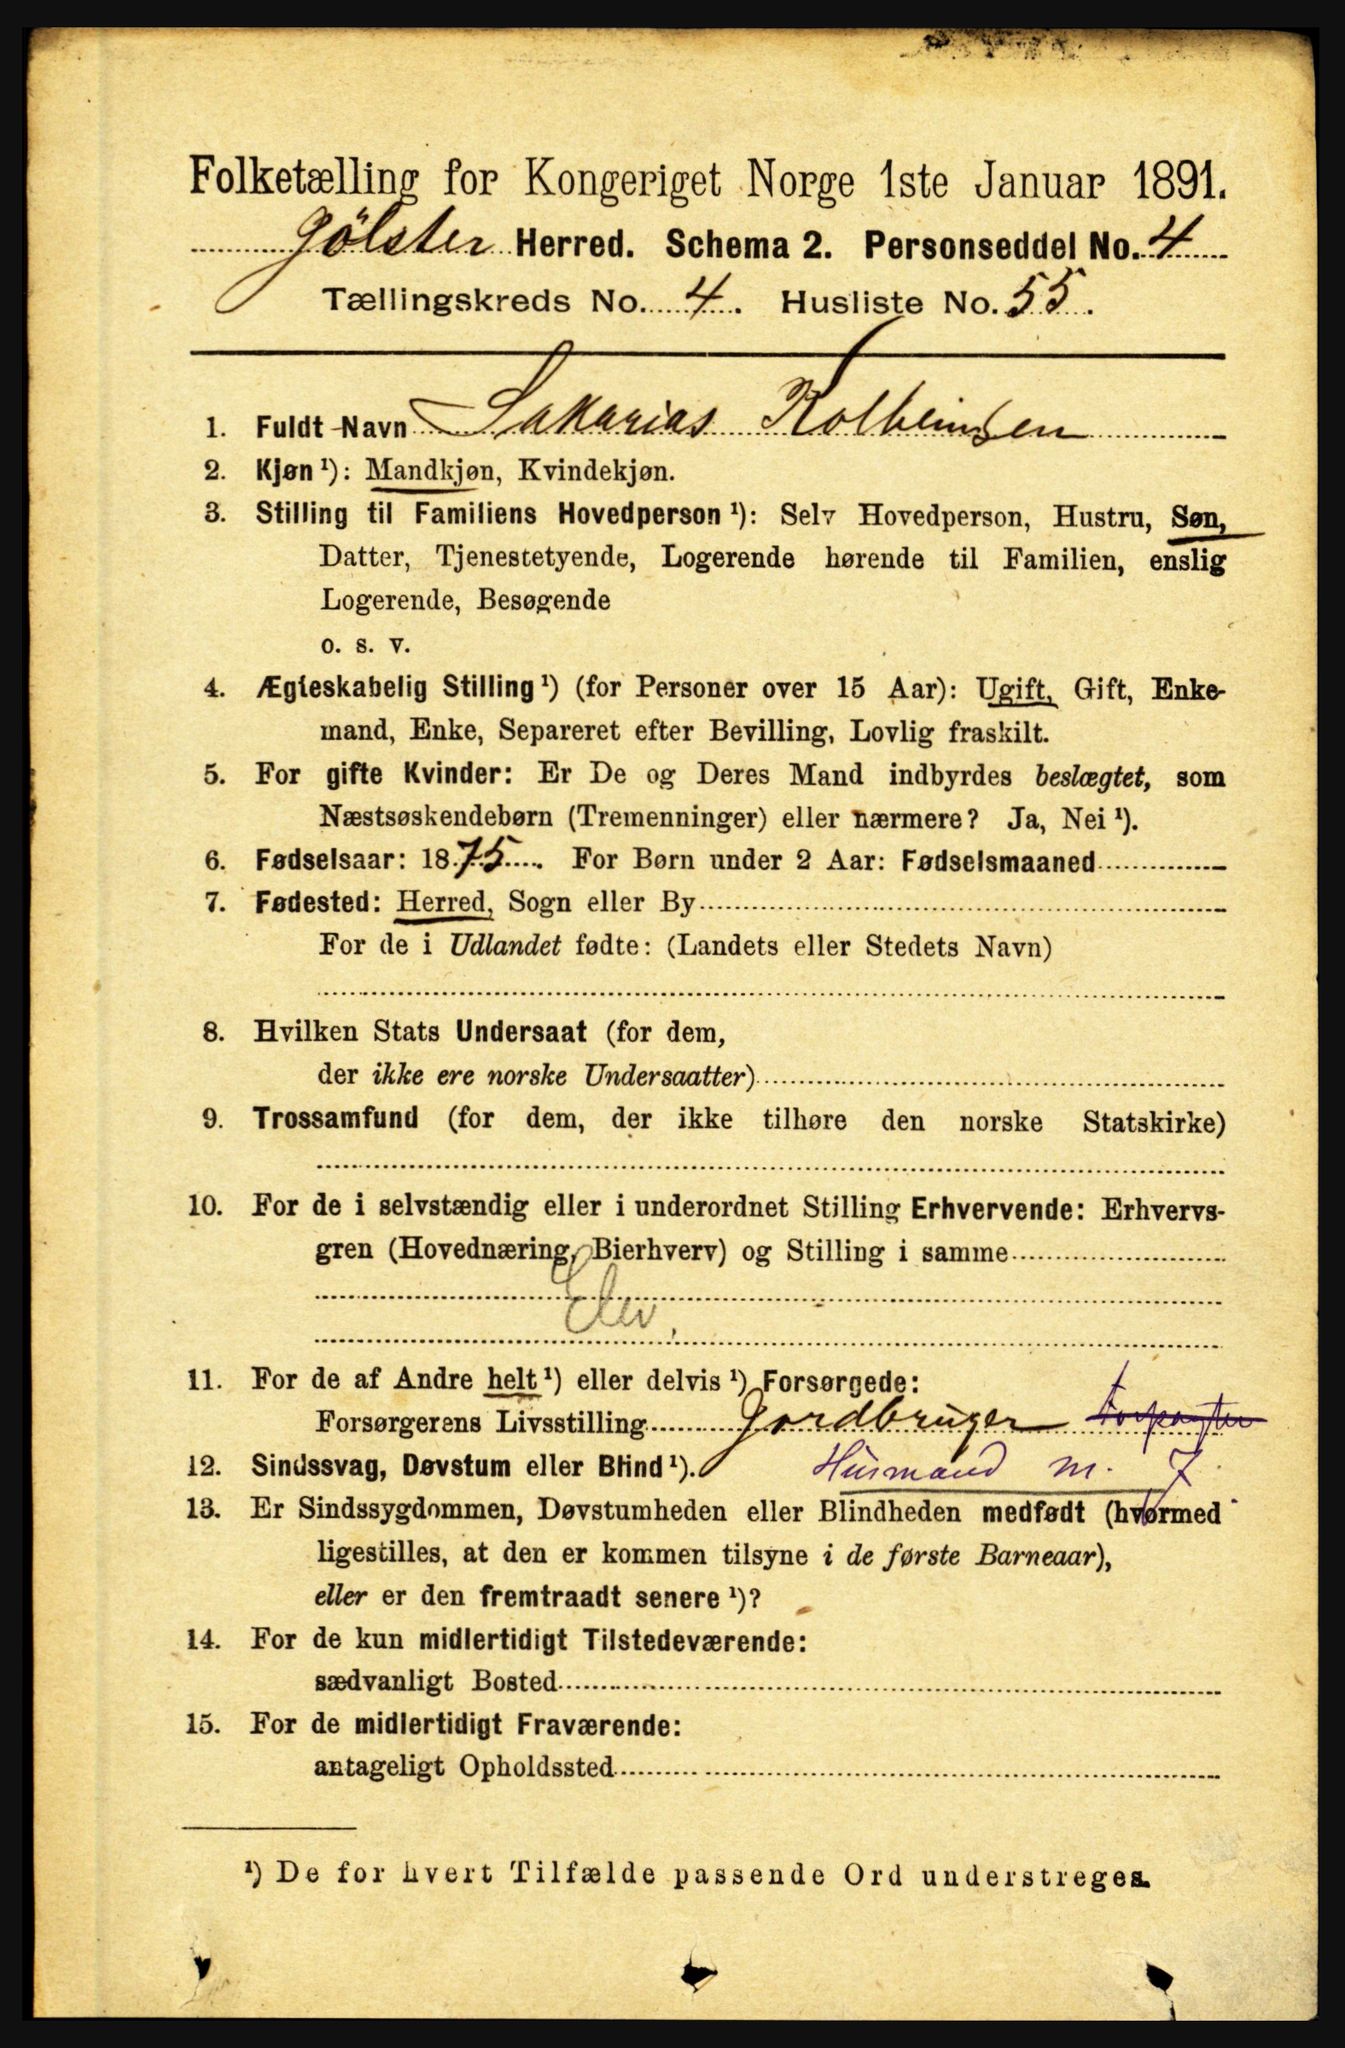 Folketælling for Kongeriget Norge 1ste Januar 1891.
Jölster Herred. Schema 2. Personseddel No. 4
Tællingskreds No. 4. Husliste No. 55.
1. Fuldt Navn Sakarias Kolbeinsen
2. Kjøn ¹): Mandkjøn, Kvindekjøn.
3. Stilling til Familiens Hovedperson ¹): Selv Hovedperson, Hustru, Søn,
Datter, Tjenestetyende, Logerende hørende til Familien, enslig
Logerende, Besøgende
o. s. v.
4. Ægteskabelig Stilling ¹) (for Personer over 15 Aar): Ugift, Gift, Enke-
mand, Enke, Separeret efter Bevilling, Lovlig fraskilt.
5. For gifte Kvinder: Er De og Deres Mand indbyrdes beslægtet, som
Næstsøskendebørn (Tremenninger) eller nærmere? Ja, Nei ¹).
6. Fødselsaar: 1875. For Børn under 2 Aar: Fødselsmaaned
7. Fødested: Herred, Sogn eller By
For de i Udlandet fødte: (Landets eller Stedets Navn)
8. Hvilken Stats Undersaat (for dem,
der ikke ere norske Undersaatter)
9. Trossamfund (for dem, der ikke tilhøre den norske Statskirke)
10. For de i selvstændig eller i underordnet Stilling Erhvervende: Erhvervs-
gren (Hovednæring, Bierhverv) og Stilling i samme
Elev.
11. For de af Andre helt ¹) eller delvis ¹) Forsørgede:
Forsørgerens Livsstilling Jordbruger
12. Sindssvag, Døvstum eller Blind ¹). Husmand m. J
13. Er Sindssygdommen, Døvstumheden eller Blindheden medfødt (hvormed
ligestilles, at den er kommen tilsyne i de første Barneaar),
eller er den fremtraadt senere ¹)?
14. For de kun midlertidigt Tilstedeværende:
sædvanligt Bosted
15. For de midlertidigt Fraværende:
antageligt Opholdssted
¹) De for hvert Tilfælde passende Ord understreges.